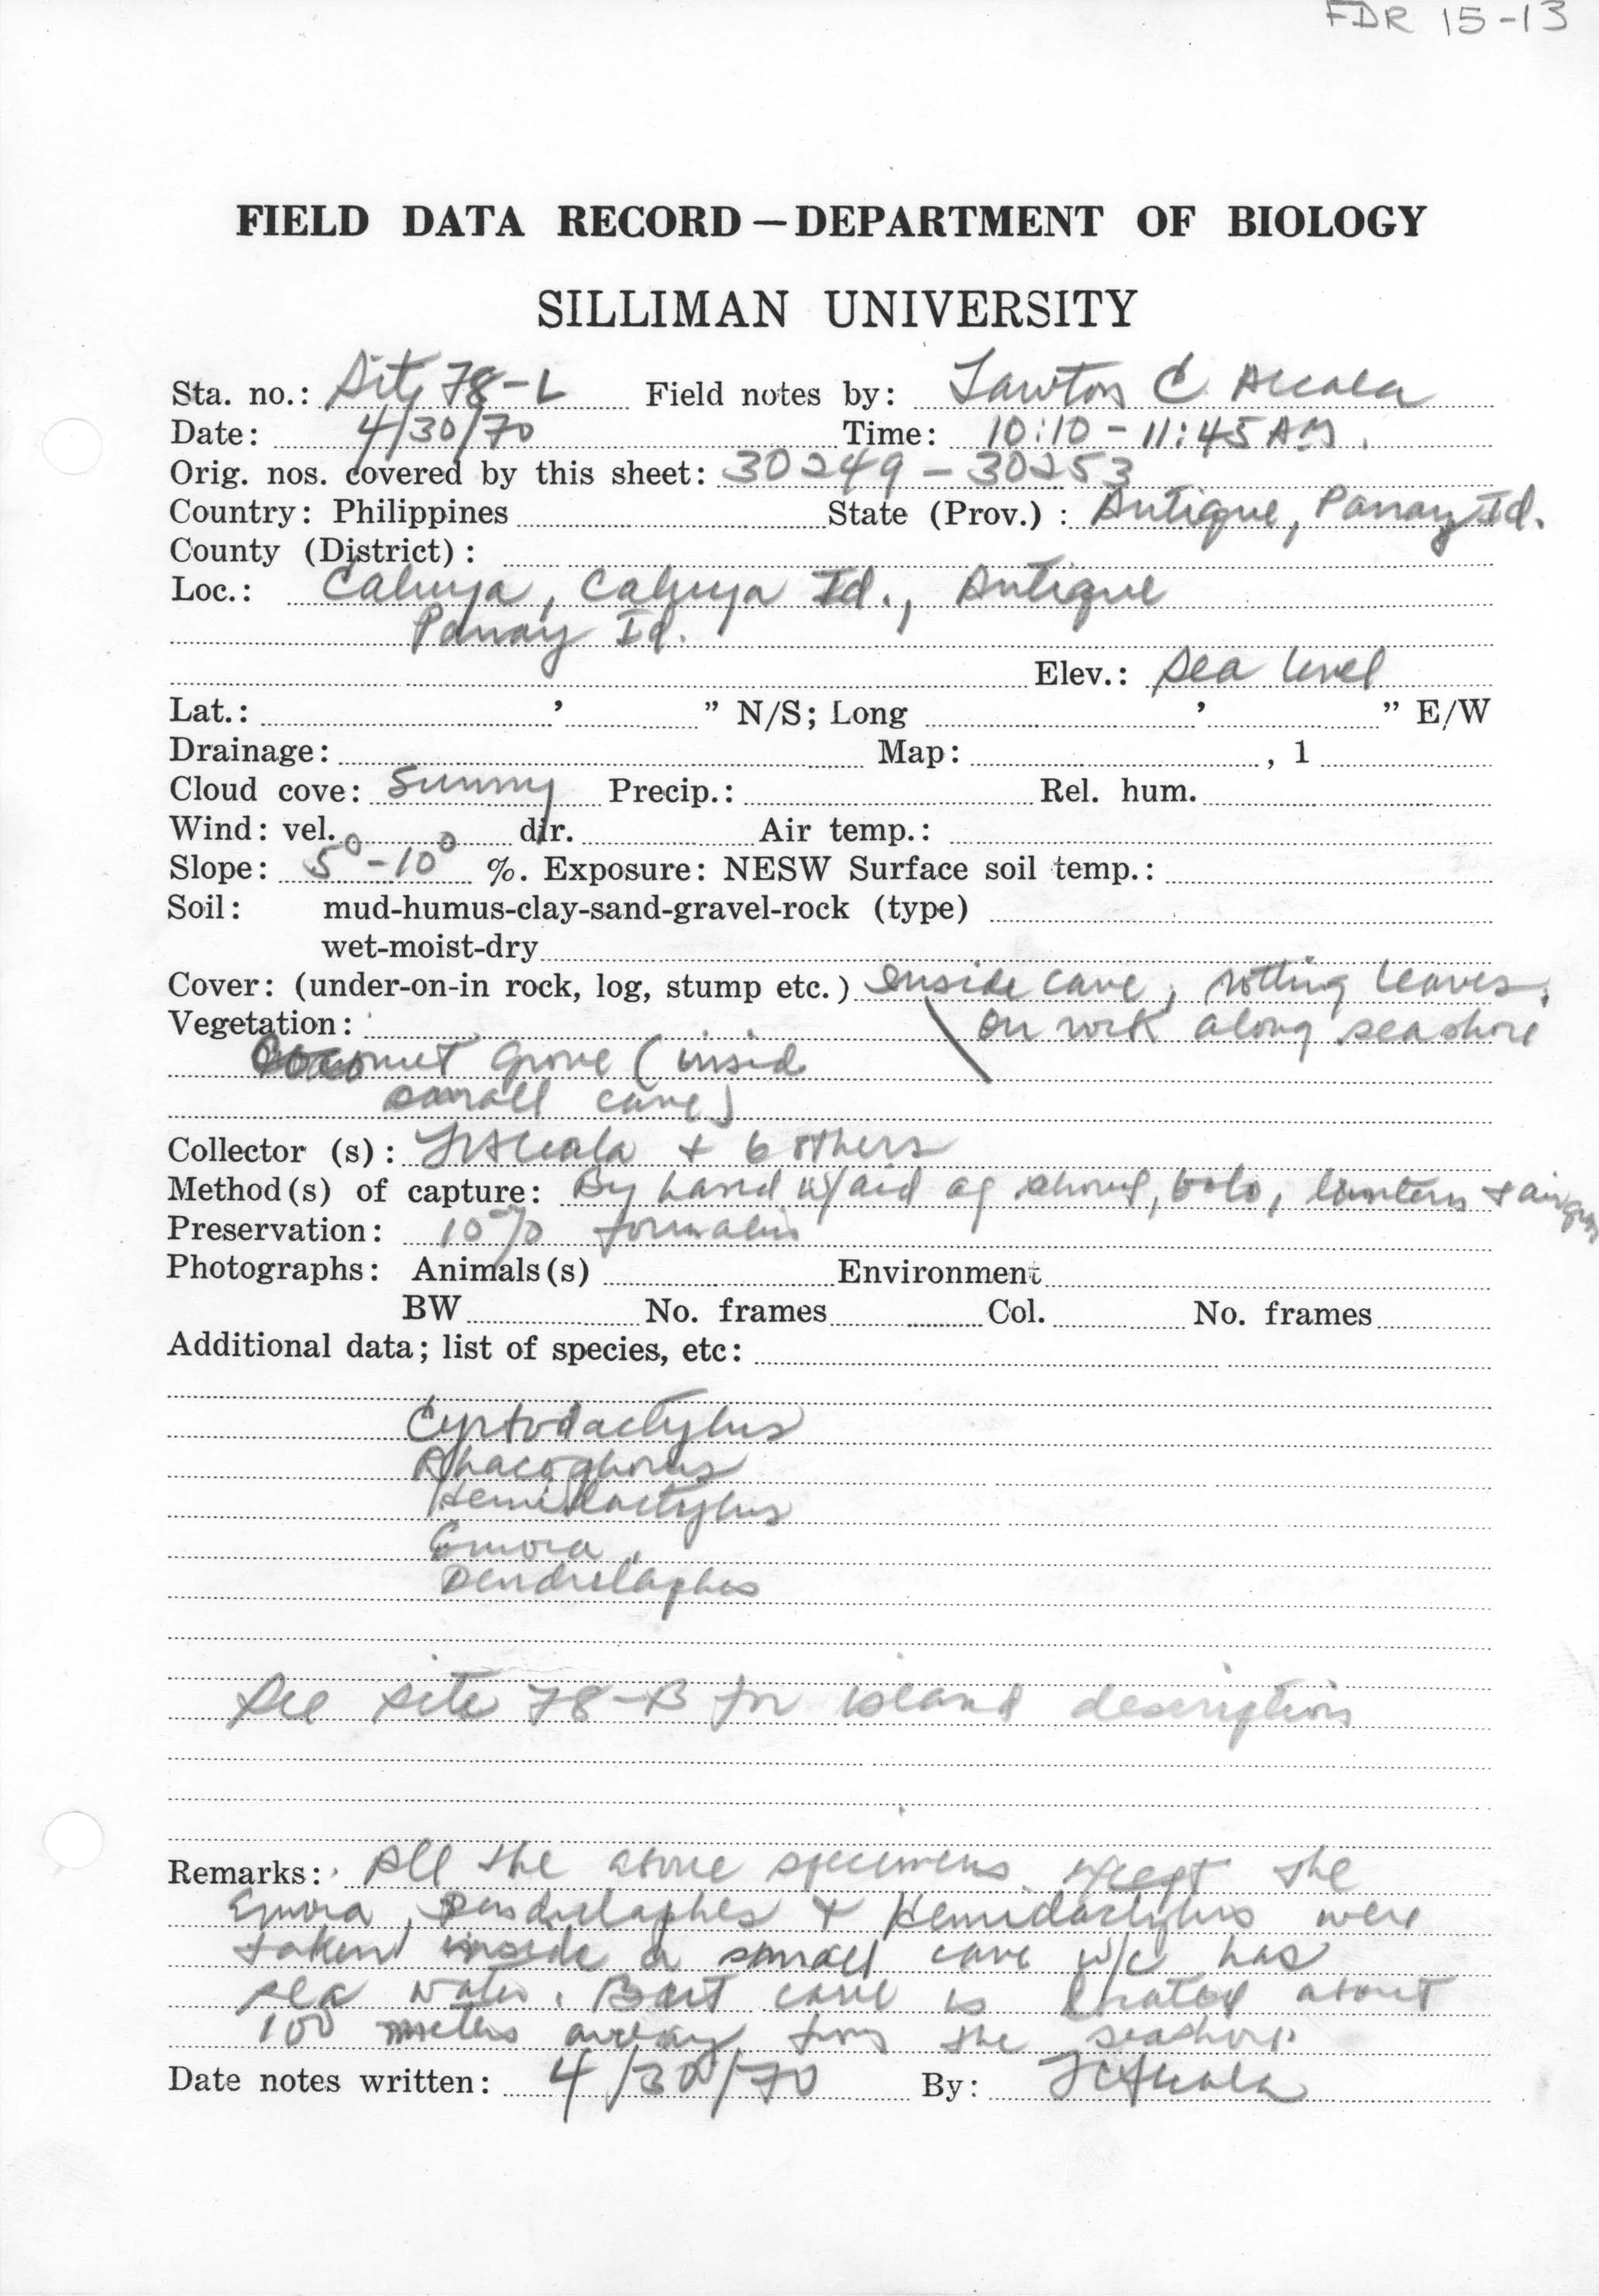 FDR 15-13
FIELD DATA RECORD — DEPARTMENT OF BIOLOGY
SILLIMAN UNIVERSITY
Sta. no.: Site 78-L Field notes by: Lawton C Alcala
Date: 4/30/70 Time: 10:10 - 11:45 AM.
Orig. nos. covered by this sheet: 30249 - 30253
Country: Philippines State (Prov.) : Antique, Panay Id.
County (District) :
Loc.: Caluya, Caluya Id., Antique
Panay Id.
Elev.: sea level
Lat.: ' " N/S; Long ' " E/W
Drainage: Map: , 1
Cloud cove: Sunny Precip.: Rel. hum.
Wind: vel. dir. Air temp.:
Slope: 5° - 10° %. Exposure: NESW Surface soil temp.:
Soil: mud-humus-clay-sand-gravel-rock (type)
wet-moist-dry
Cover: (under-on-in rock, log, stump etc.) inside cave, rotting leaves,
Vegetation: on rock along seashore
Coconut grove (insid
small cave)
Collector (s): LCAlcala + 6 others
Method(s) of capture: By hand w/aid of shovel, bolo, lantern + airgun
Preservation: 10% formalin
Photographs: Animals(s) Environment
BW No. frames Col. No. frames
Additional data; list of species, etc:
Cyrtodactylus
Rhacophorus
Hemidactylus
Emoia,
Dendrelaphis
See site 78-B for island description
Remarks: All the above specimens except the
Emoia, Dendrelaphes + Hemidactylus were
taken inside a small cave w/c has
sea water. Bart cave is located about
100 meters away from the seashore.
Date notes written: 4/30/70 By: LCAlcala